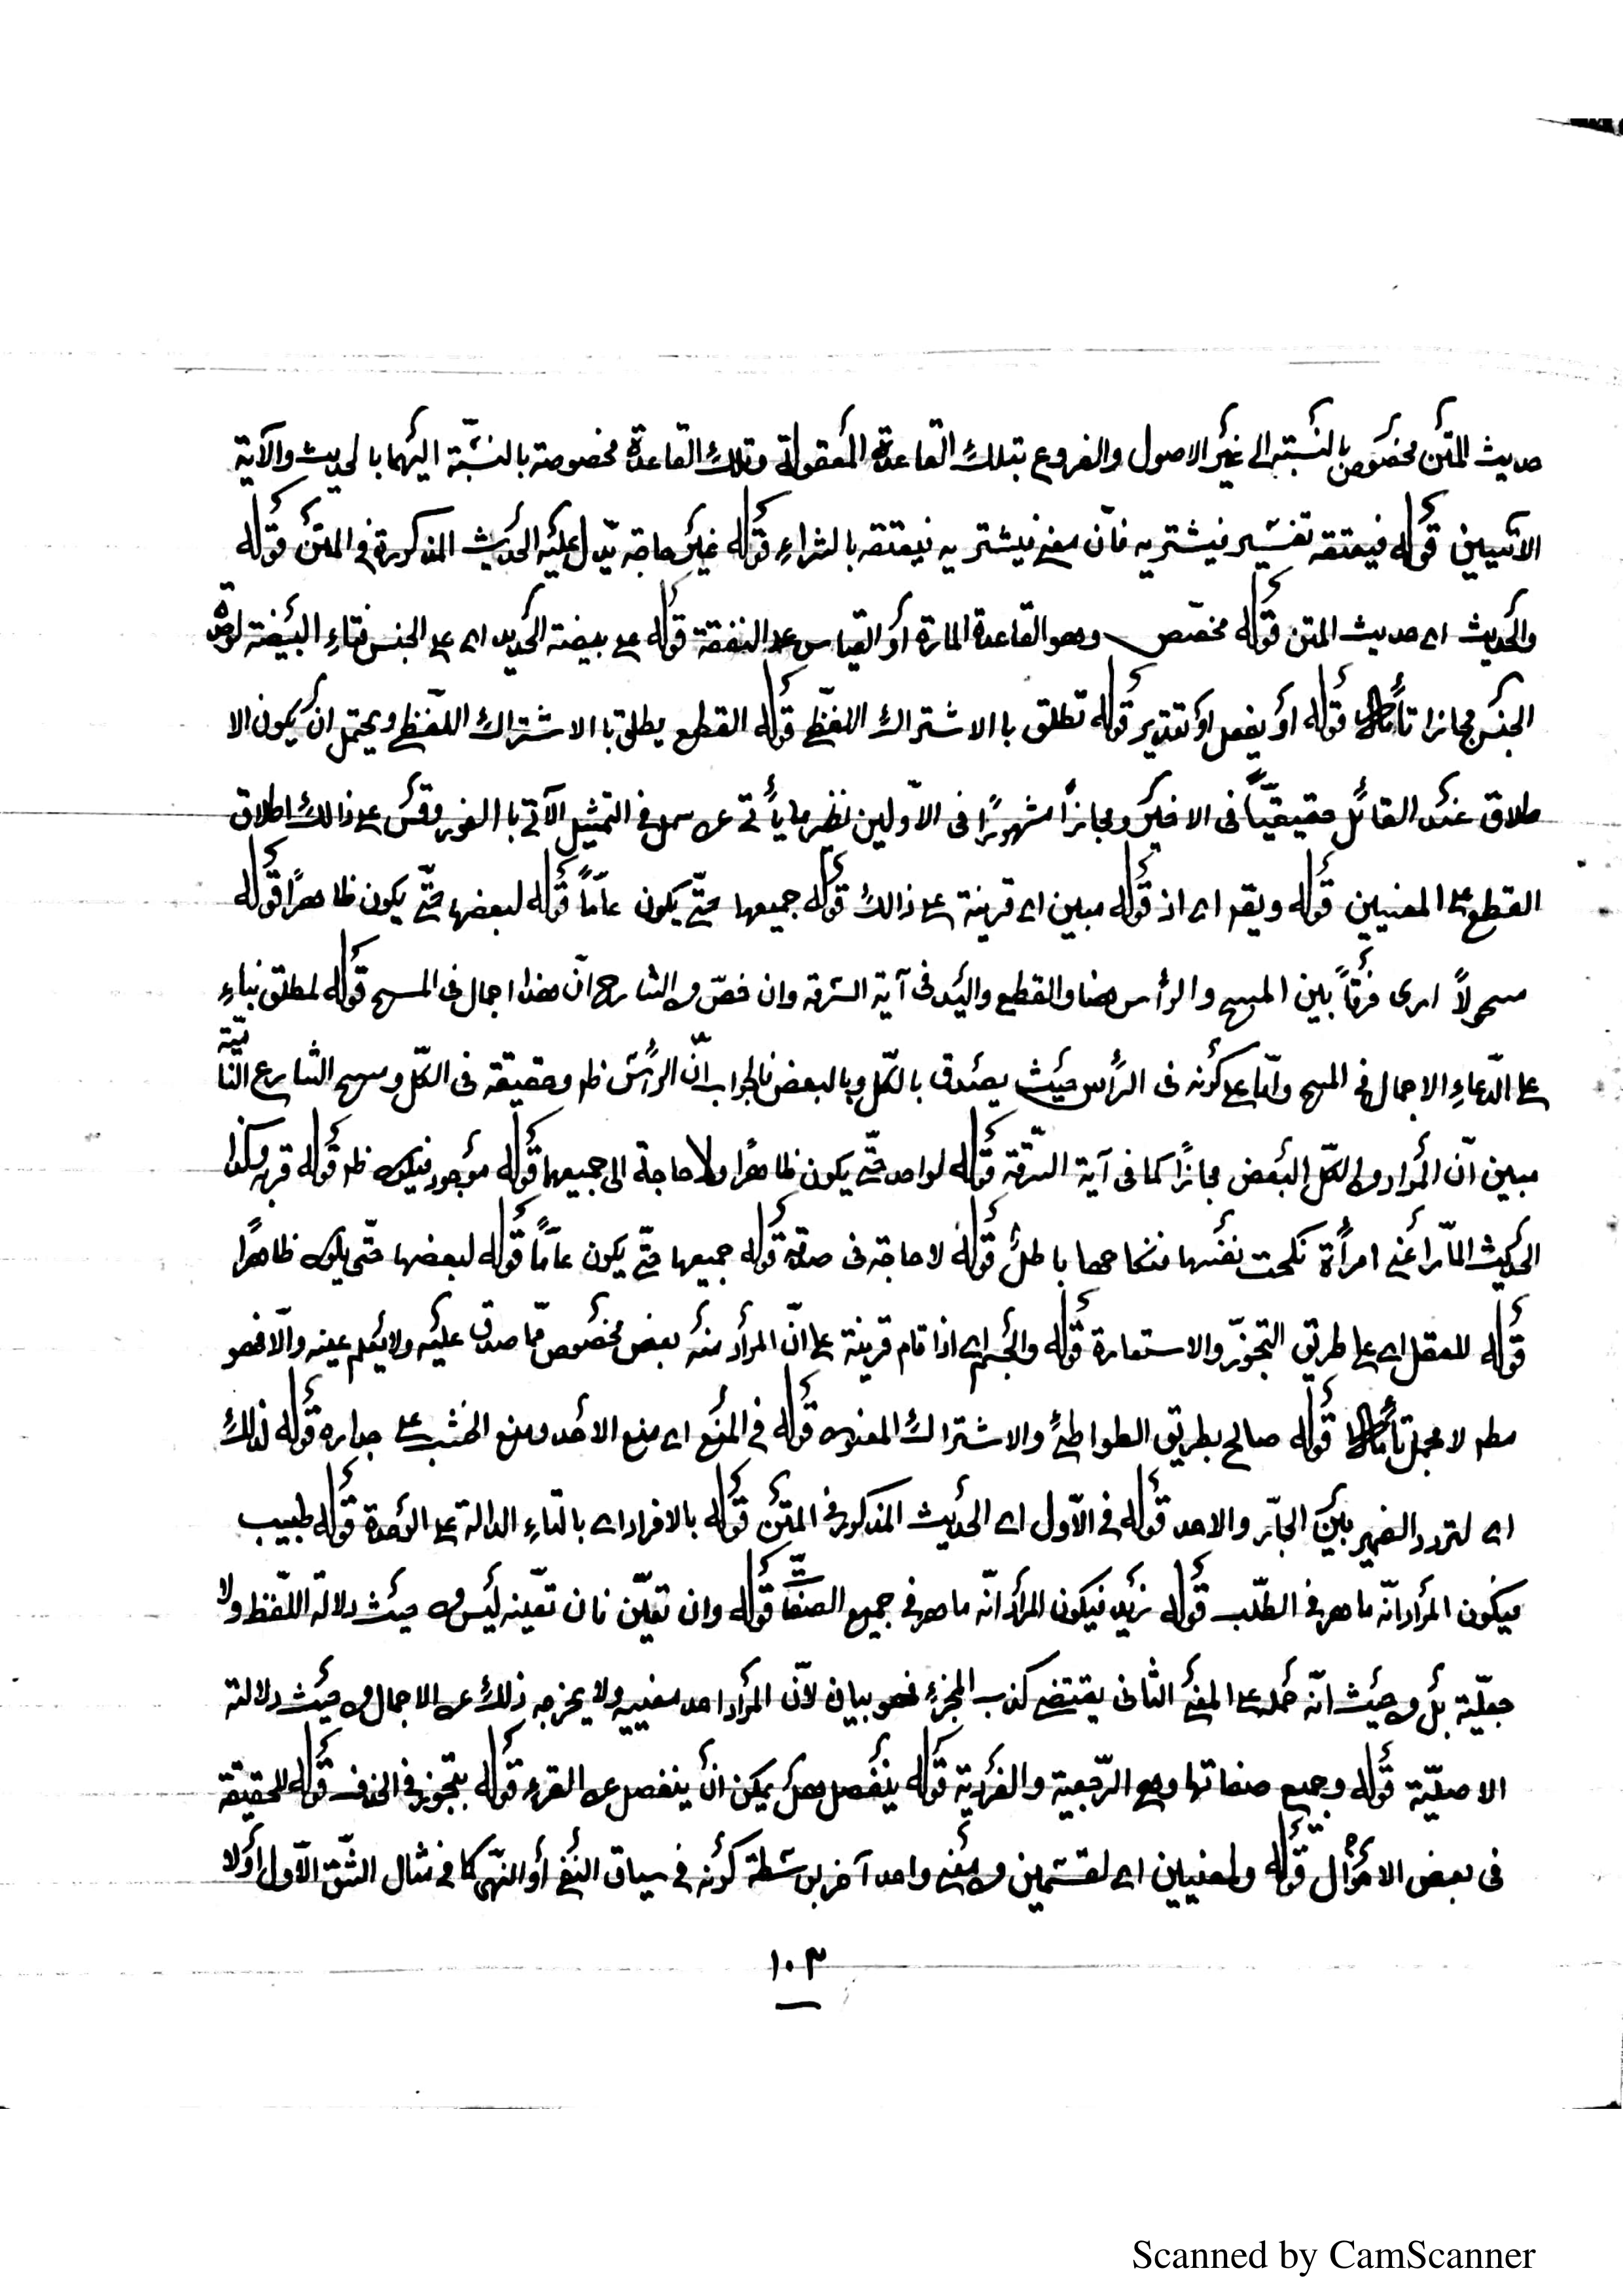 حديث المتن مخصوص بالنسبة الى غير الاصول والفروع بتلك القاعدة المعقولة وتلك القاعدة مخصوصة بالنسبة اليهما بالحديث والآية
الاتيين قوله فيعتقه تفسير فيشتريه فان معنى فيشتريه فيعتقه بالشراء قوله غير حاجة يدل عليه الحديث المذكورة فى المتن قوله
والحديث اى حديث المتن قوله مخصص وهو القاعدة المارة أو القياس على النفقة قوله على بيضة الحديد اى على الجنس فتاء البيضة لوحدة
الجنس مجازا تأمل قوله او يفعل او تقدير قوله تطلق با الاشتراك اللفظى قوله القطع يطلق با الاشتراك اللفظى ويحتمل ان يكون الا
طلاق عند القائل حقيقيّاً فى الاخير ومجازاً مشهورًا فى الاولين نظر ما يأتى عن سمل فى التمثيل الآتى با الفور وقس على ذالك اطلاق
القطع على المعنيين قوله ويقد اى اذ قوله مبين اى قرينة على ذالك قوله جميعها حتى يكون عامّاً قوله لبعضها حتى يكون ظاهرًا قوله
سحولاً ارى فرقاً بين المسح والرأس هنا والقطع واليد فى آية السرقة وان خص الشارح ان هذا اجمال فى المسح قوله لمطلق بناء
على ادّعاء الاجمال فى المسح وامّا على كونه فى الرأس حيث يصدق بالكل وبالبعض فالجواب انّ الرأس ظ وحقيقة فى الكل ومسح الشارع الناصية
مبين انّ المراد من الكل البعض مجازًا كما فى آية السرقة قوله لواحد حتى يكون ظاهرًا ولا حاجة الى جميعها قوله موجود فيكون ظ قوله قربه وكذا
الحديث المار اعنى امرأة نكحت نفسها فنكاحها باطل قوله لا حاجة فى صدقه قوله جميعها حتى يكون عامّاً قوله لبعضها حتى يكون ظاهرًا
قوله للعقل اى على طريق التجوّز والاستعارة قوله والجسم اى اذا قام قرينة على انّ المراد منه بعض مخصوص مما صدق عليه ولا يعلم عينه والّا فهو
مط لا مجمل تأمل قوله صالح بطريق الطواطئ والاشتراك المعنوى قوله فى المنع اى منع الاحد ومنع الخشب على جداره قوله لذلك
اى لتردد الضمير بين الجار والاحد قوله فى الاول اى الحديث المذكور فى المتن قوله بالافراد اى بالتاء الدالة على الوحدة قوله طبيب
فيكون المراد انّه ماهر فى الطب قوله زيد فيكون المراد انّه ماهر فى جميع الصفات قوله وان تعيّن فان تعيّنه ليس من حيث دلالة اللفظ ولا
جعليّة بل من حيث انّه حمله على المعنى الثانى يقتضى كذب المخبر فهو بيان لانّ المراد احد معنييه ولا يخرجه ذلك عن الاجمال من حيث دلالته
الاصليّة قوله وجميع صفاتها وهى الرّجعية والفردية قوله ينفصل هل يمكن ان ينفصل عن القرء قوله بتجوز فى الحذف قوله للحقيقة
فى بعض الاحوال قوله ولمعنيين اى لقسمين من معنى واحد آخر بواسطة كونه فى سياق النفى أو النهى كما فى مثال الشق الاول اولا
١٠٣
Scanned by CamScanner